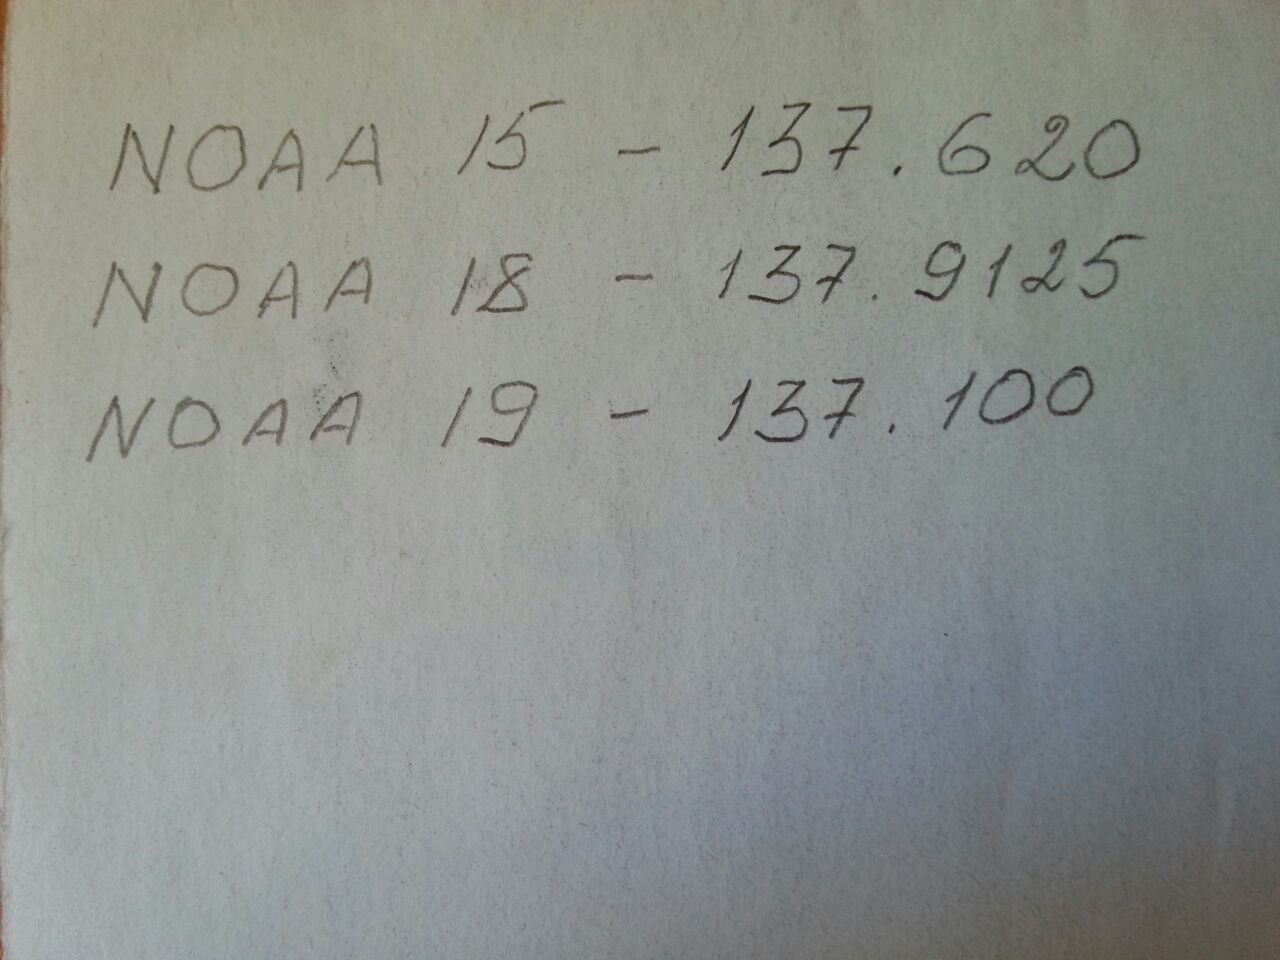 NOAA 15 - 137.620
NOAA 18 - 137.9125
NOAA 19 - 137.100